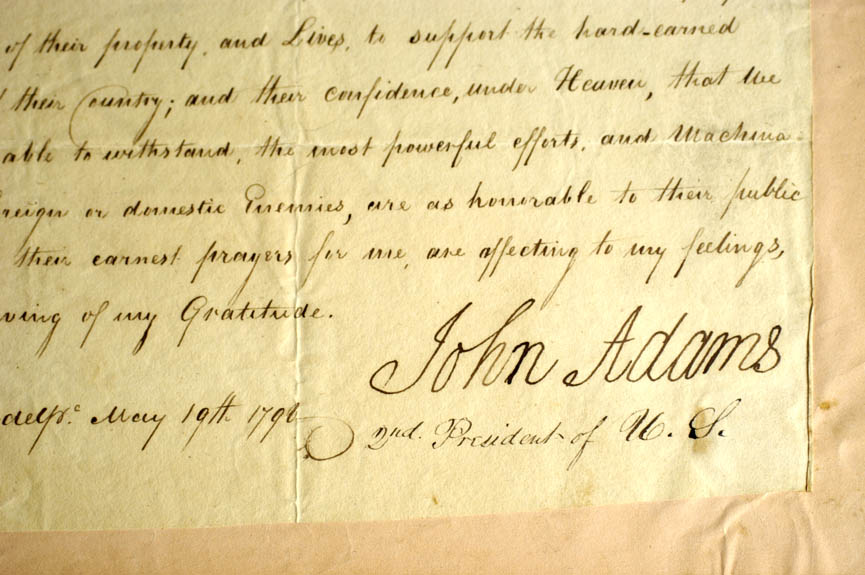 of their property, and Lives, to support the hard-earned
their Country; and their confidence, under Heaven, that We
able to withstand, the most powerful efforts, and Machina-
reign or domestic Enemies, are as honorable to their public
their earnest prayers for me, are affecting to my feelings,
ving of my Gratitude.
John Adams
delpa. May 19th
2nd. President of U. S.